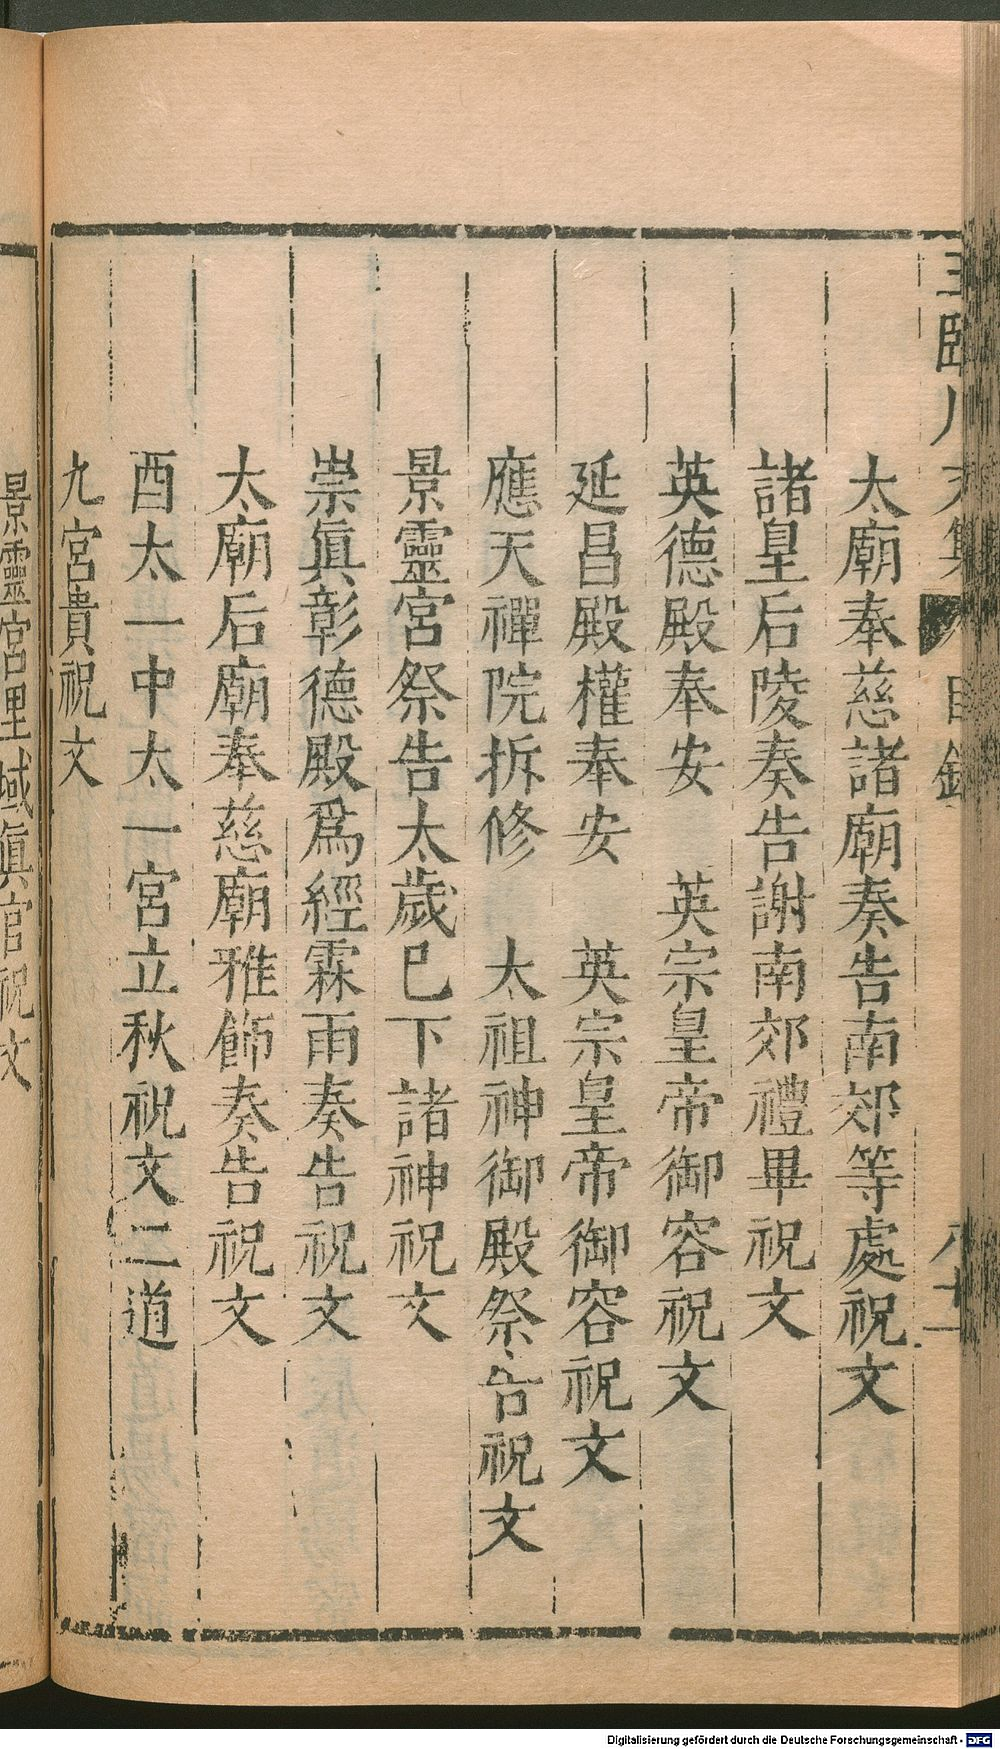 太廟奉慈諸廟奏告南郊等處祝文
諸皇后陵奏告謝南郊禮畢祝文
英德殿奉安　英宗皇帝御容祝文
延昌殿權奉安　英宗皇帝御容祝文
應天禪院拆修　太祖神御殿祭告祝文
景靈宮祭告太歲巳下諸神祝文
崇眞彰德殿爲經霖雨奏告祝文
太廟后廟奉慈廟雅飾奏告祝文
酉太一中太一宮立秋祝文二道
九宮貴祝文
景靈宮里域眞官祝文
Digitalisierung gefördert durch die Deutsche Forschungsgemeinschaft - DFG